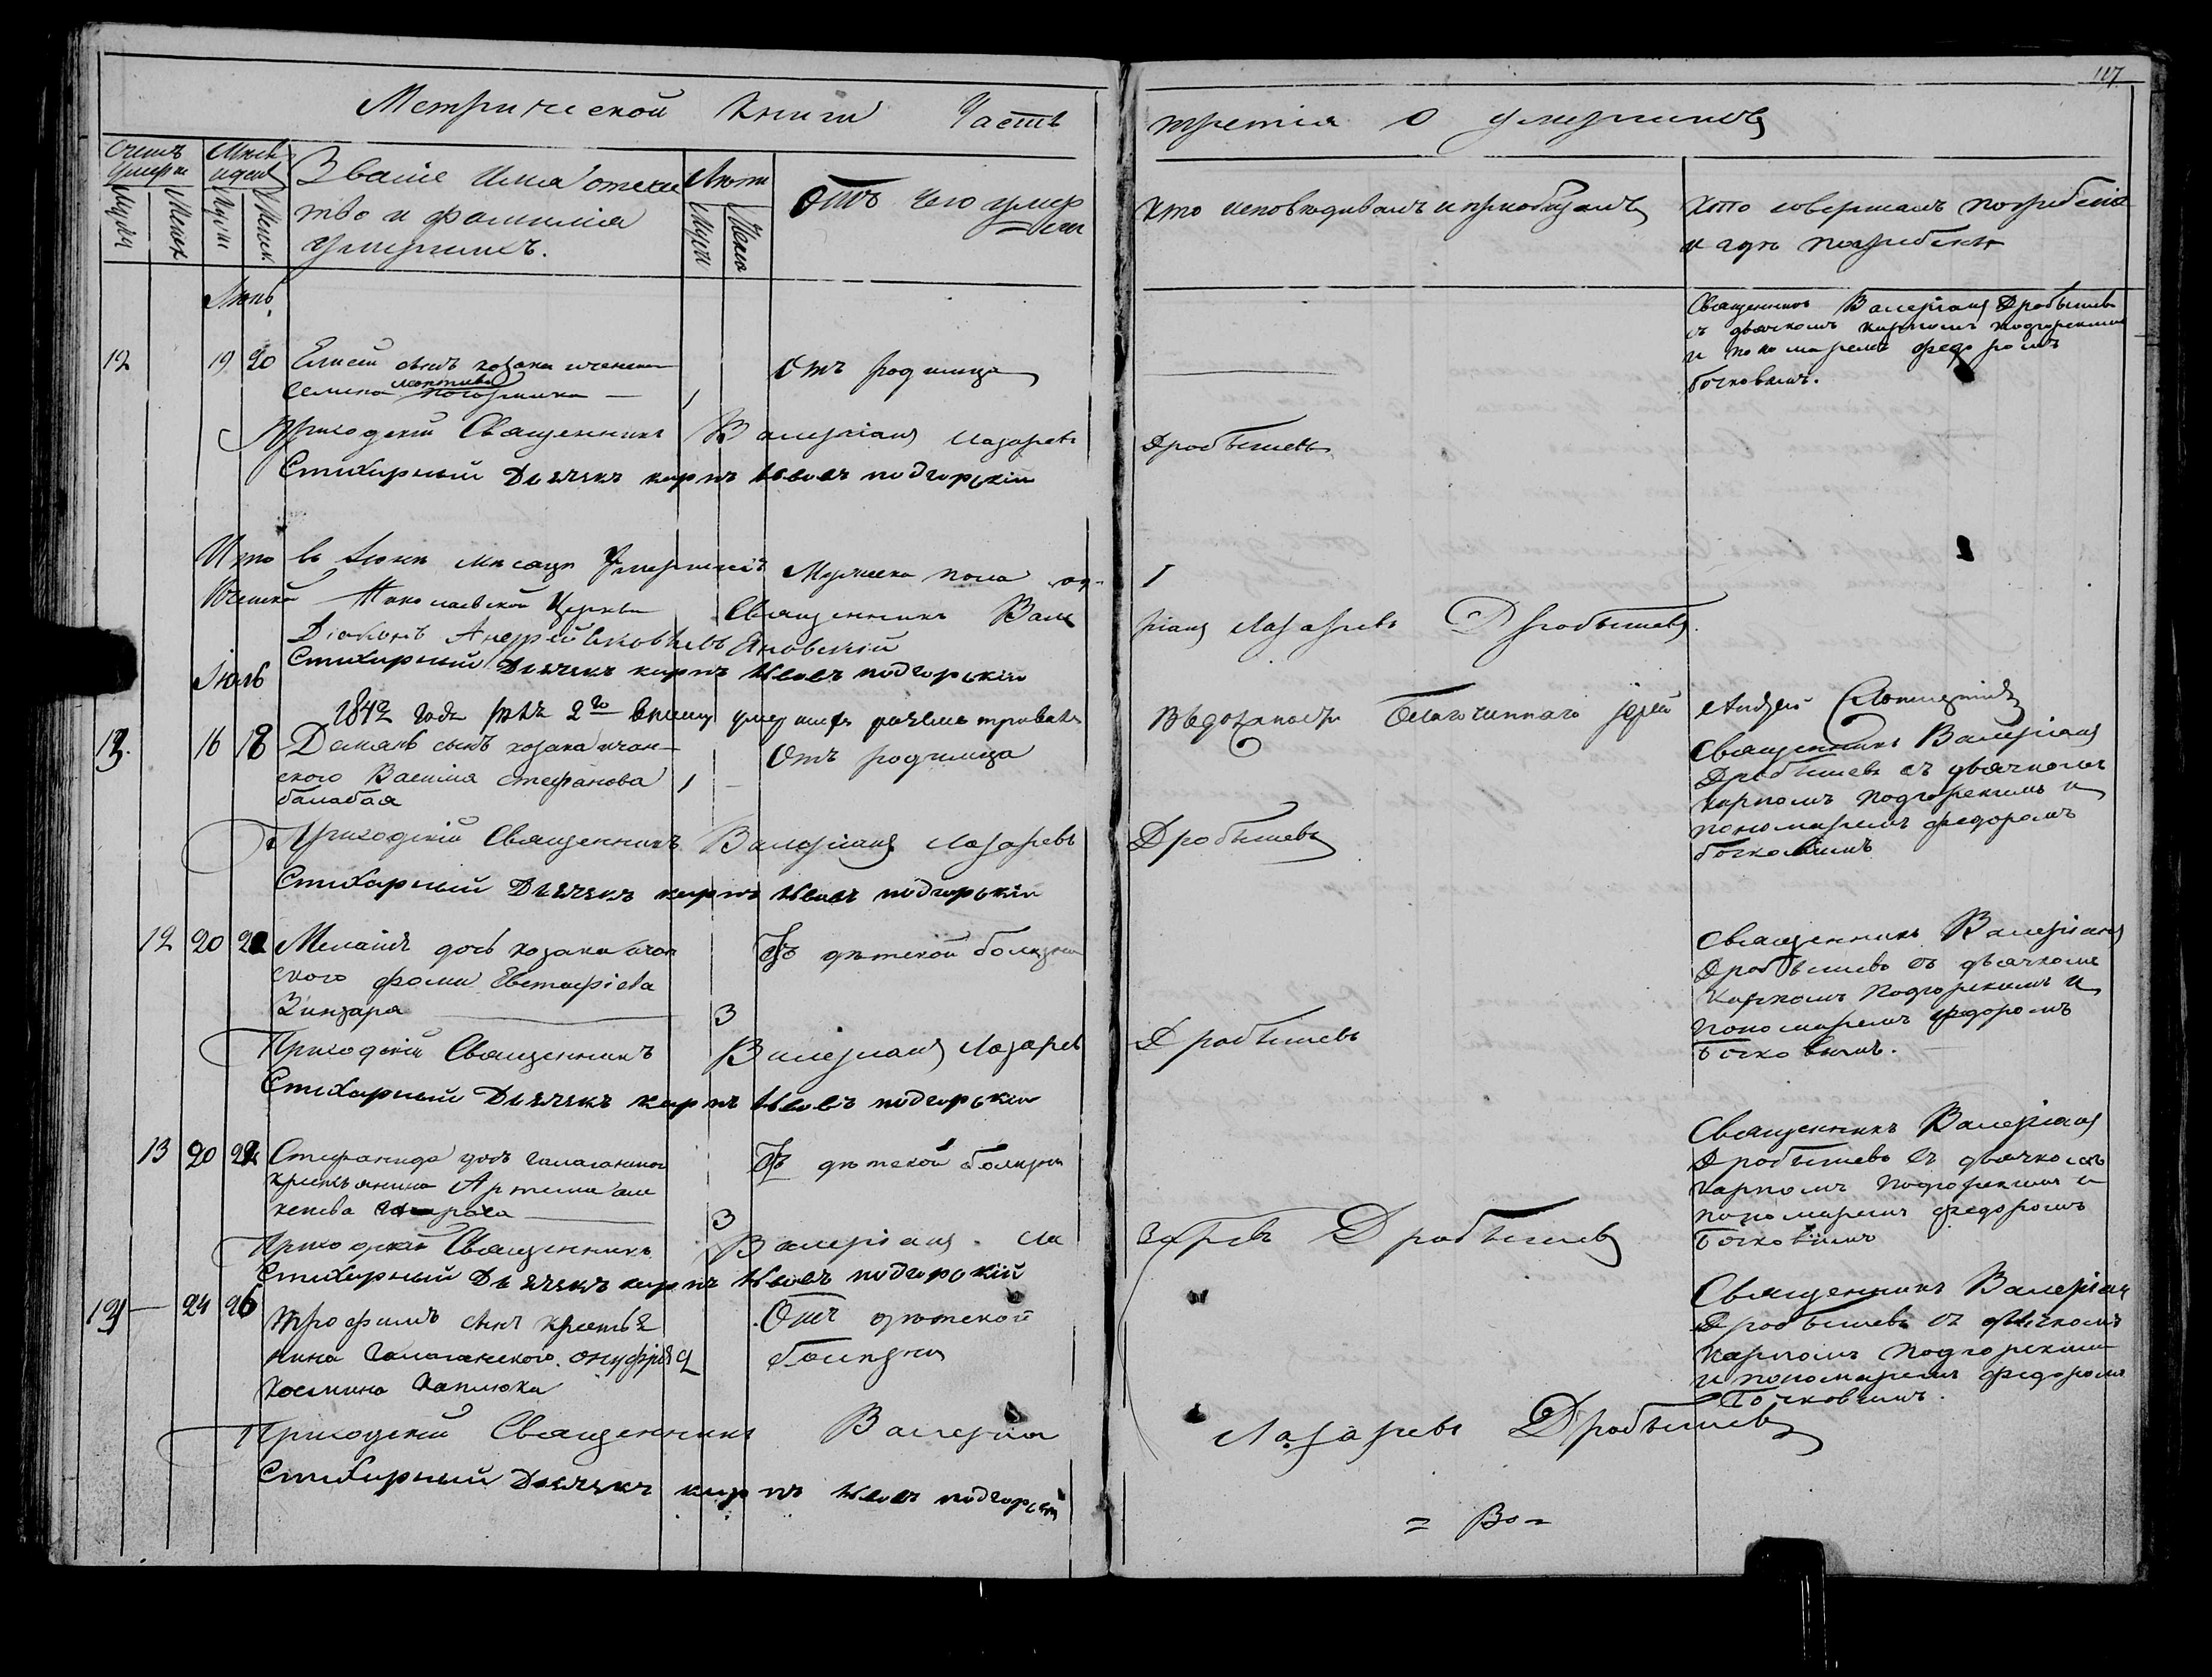 117
Метрической Книги Часть третія о умершихъ
Счетъ умерш
Мѣсяц и день
Званіе имя отече
ство и фамилія
умершихъ.
Лѣта
Отъ чего умер
ли
Кто исповѣдивалъ и пріобщалъ
Кто совершалъ погребеніе
и гдѣ погребены
Мужеска
Женск
Мужс
Женск
Іюнь
12 19 20
Елисей сынъ козака ичанска
Семена
1
Отъ родимца
Священникъ Валеріанъ Дробышевъ
съ дьячкомъ Карпомъ Подгорскимъ
и пономаремъ Федоромъ
Бочковымъ.
Приходскій Священникъ Валеріанъ Лазаревъ Дробышевъ
Стихарный Дьячекъ карпъ Ивовъ подгорскій
Итого въ Іюнѣ мѣсяцѣ умершихъ Мужеска пола 1
Николаевской Церкви Священникъ Валеріанъ Лазаревъ Дробышевъ.
Діаконъ Андрей Яковлевъ Яновскій
Стихарный Дьячекъ карпъ Ивовъ подгорскій
Іюль
1842 года Іюля 2го
Благочиннаго Іерей Андрей
13. 16 18
Демянъ сынъ козака ичан-
ского Василія Стефанова
балабая
1
Отъ родимца
Священникъ Валеріанъ
Дробышевъ съ дьячкомъ
Карпомъ Подгорскимъ и
пономаремъ Федоромъ
Бочковымъ
Приходскій Священникъ Валеріанъ Лазаревъ Дробышевъ
Стихарный Дьячекъ карпъ Ивовъ подгорскій
12 20 22
Меланія дочь козака ичан
ского Фомы Евстафіева
Зинзаря
3
Отъ дѣтской болезни
Священникъ Валеріанъ
Дробышевъ съ дьячкомъ
Карпомъ Подгорскимъ и
Пономаремъ Федоромъ
Бочковымъ.
Приходскій Священникъ Валеріанъ Лазаревъ Дробышевъ
Стихарный Дьячекъ карпъ Ивовъ подгорскій
13 20 22
Стефанида дочь галаганского
крестьянина Артема але
ксѣева
3
Отъ дѣтской болезни
Священникъ Валеріанъ
Дробышевъ съ дьячкомъ
Карпомъ Подгорскимъ и
пономаремъ Федоромъ
Бочковымъ
Приходскій Священникъ Валеріанъ Лазаревъ Дробышевъ
Стихарный Дьячекъ карпъ Ивовъ подгорскій
24 26
Трофимъ сынъ крестья
нина Галаганского Онуфрія
Космина Каплюка
Отъ дѣтской
болезни
Священникъ Валеріан
Дробышевъ съ дьячкомъ
Карпомъ Подгорскимъ
и пономаремъ Федоромъ
Бочковымъ.
Приходскій Священникъ Валеріа Лазаревъ Дробышевъ
Стихарный Дьячекъ карпъ Ивовъ подгорскій
= Во =